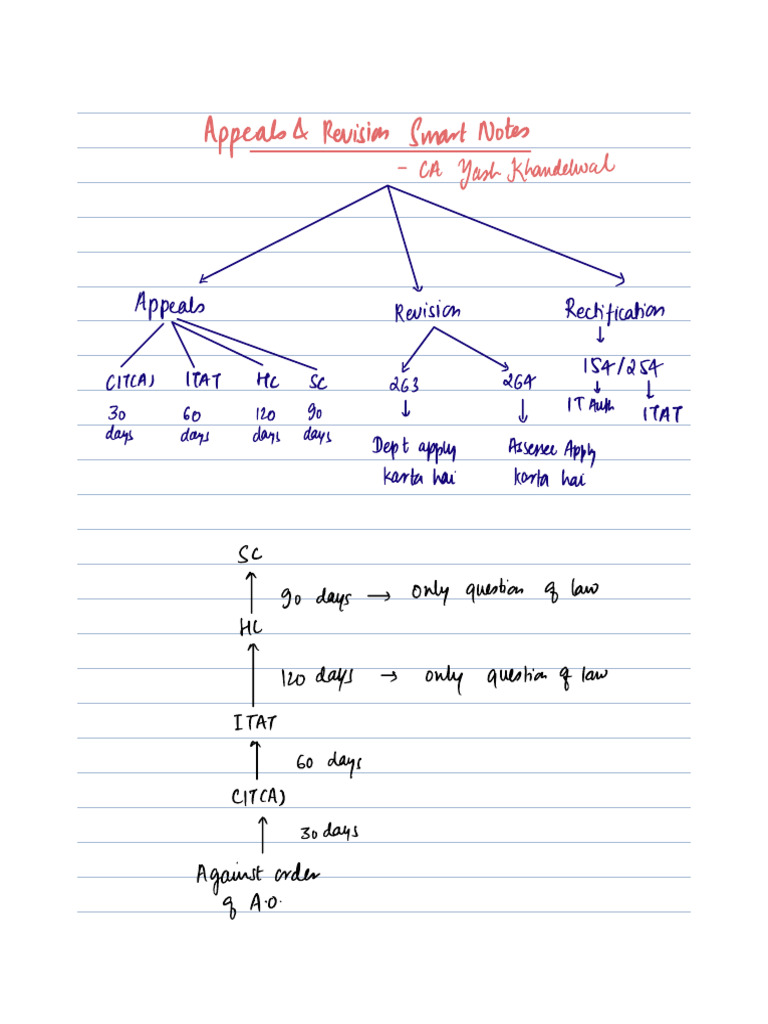 Appeals & Revision Smart Notes
- CA Yash Khandelwal
Appeals Revision Rectification
CIT(A) ITAT HC SC 263 264 154/254
30 60 120 90 IT Auth ITAT
days days days days
Dept apply Assesee Apply
karta hai karta hai
SC
90 days → only question of law
HC
120 days → only question of law
ITAT
60 days
CIT(A)
30 days
Against order
of A.O.